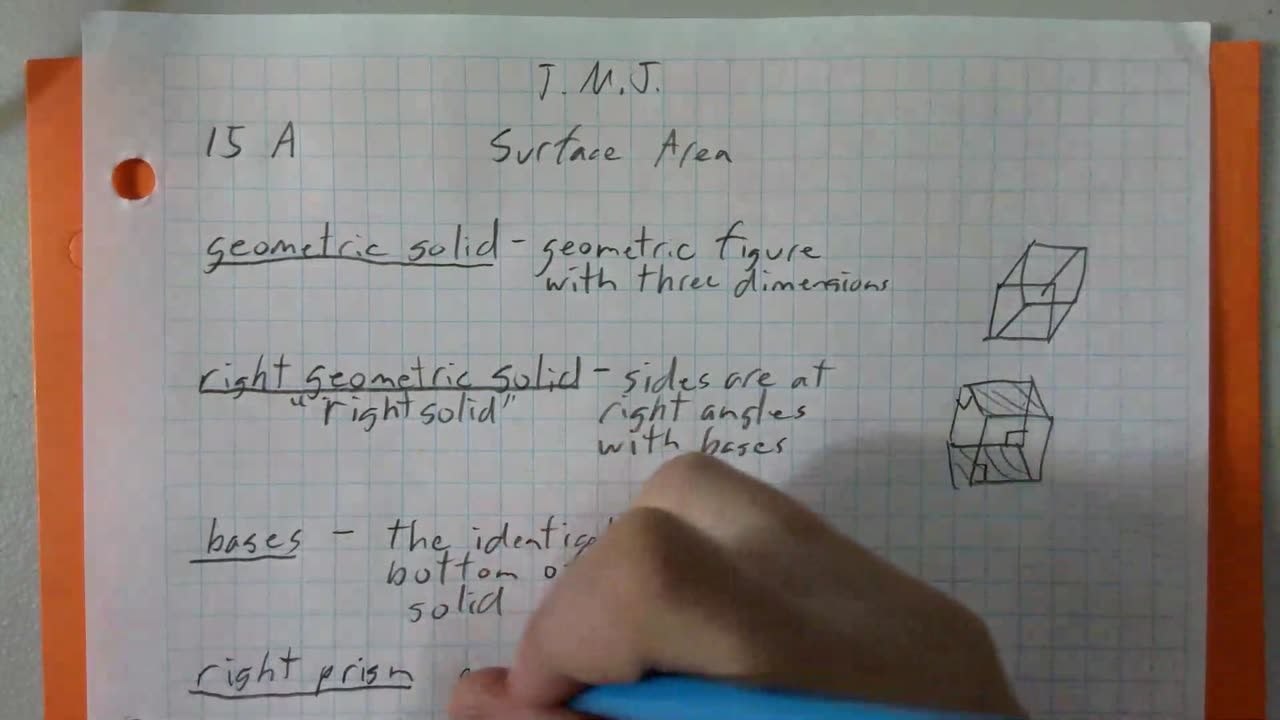 J.M.J.
15 A Surface Area
geometric solid - geometric figure
with three dimensions
right geometric solid - sides are at
"right solid" right angles
with bases
bases - the
bottom
solid
right prism